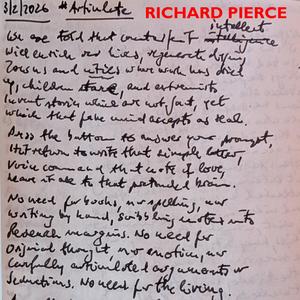 RICHARD PIERCE
3/2/2026 #Articulate
intellect
We are told that counterfeit intelligence
will enrich our lives, regenerate dying
towns and cities where work has dried
up, children starve, and extremists
invent stories which are not fact, yet
which that fake mind accepts as real.
Press the button to answer your prompt,
hit return to write that simple letter,
voice command that note of love,
leave it all to that pretended brain.
No need for books, no spelling, nor
writing by hand, scribbling notes into
research margins. No need for
original thought nor emotion, nor
carefully articulated arguments or
seductions. No need for the living.